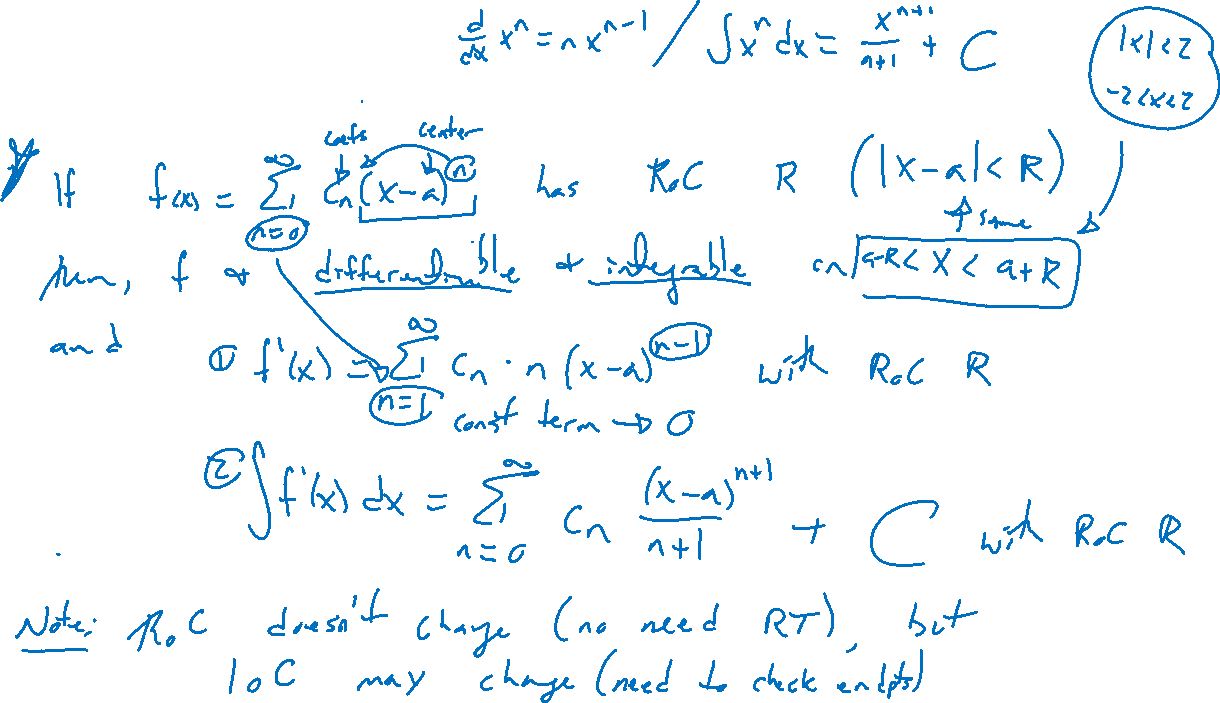 d/dx xⁿ = n xⁿ⁻¹ / ∫xⁿ dx = xⁿ⁺¹/(n+1) + C
|x| < 2
-2 < x < 2
coefs center
If f(x) = ∑_{n=0}^{∞} Cₙ (x-a)ⁿ has RoC R (|x-a| < R)
↑ same
then, f is differentiable & integrable on a-R < x < a+R
and ① f'(x) = ∑_{n=1}^{∞} Cₙ · n (x-a)ⁿ⁻¹ with RoC R
const term → 0
② ∫ f'(x) dx = ∑_{n=0}^{∞} Cₙ (x-a)ⁿ⁺¹/(n+1) + C with RoC R
Note: RoC doesn't change (no need RT), but
IoC may change (need to check endpts)